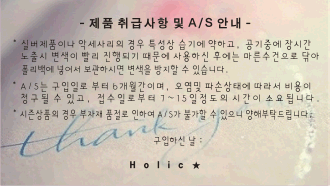 - 제품 취급사항 및 A/S 안내 -
* 실버제품이나 악세사리의 경우 특성상 습기에 약하고, 공기중에 장시간
노출시 변색이 빨리 진행되기 때문에 사용하신 후에는 마른수건으로 닦아
폴리백에 넣어서 보관하시면 변색을 방지할 수 있습니다.
* A/S는 구입일로 부터 6개월간이며, 오염및 파손상태에 따라서 비용이
청구될 수 있고, 접수일로부터 7~15일정도의 시간이 소요됩니다.
* 시즌상품의 경우 부자재 품절로 인하여 A/S가 불가할 수 있으니 양해부탁드립니다.
thank
구입하신 날 :
Holic ★